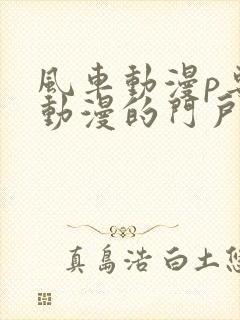 風車動漫p
動漫的門戶
真島浩 白土